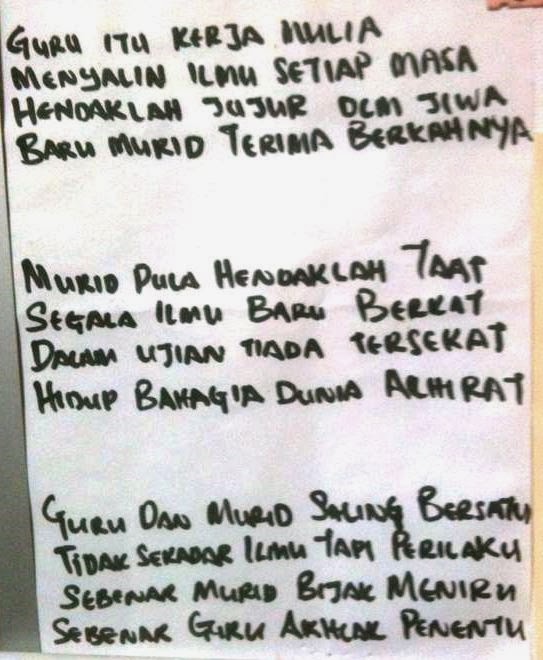 GURU ITU KERJA MULIA
MENYALIN ILMU SETIAP MASA
HENDAKLAH JUJUR DLM JIWA
BARU MURID TERIMA BERKAHNYA
MURID PULA HENDAKLAH TAAT
SEGALA ILMU BARU BERKAT
DALAM UJIAN TIADA TERSEKAT
HIDUP BAHAGIA DUNIA AKHIRAT
GURU DAN MURID SALING BERSATU
TIDAK SEKADAR ILMU TAPI PERILAKU
SEBENAR MURID BIJAK MENIRU
SEBENAR GURU AKHLAK PENENTU